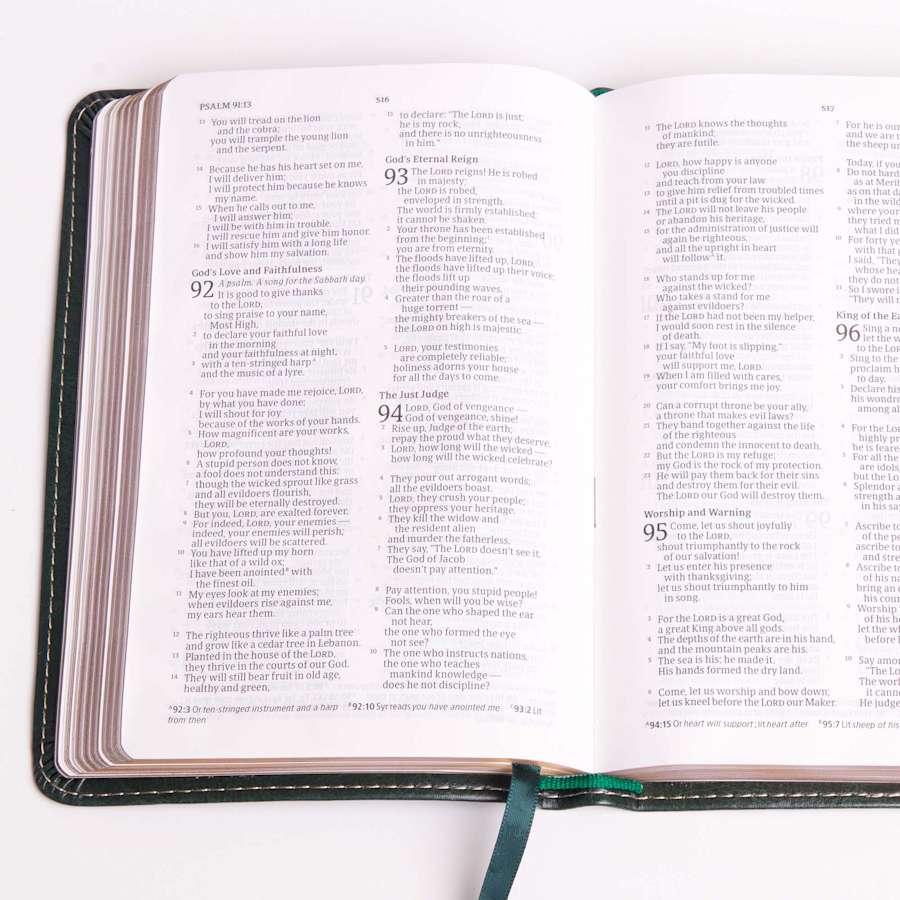 PSALM 91:13
516
13 You will tread on the lion
and the cobra;
you will trample the young lion
and the serpent.
14 Because he has his heart set on me,
I will deliver him;
I will protect him because he knows
my name.
15 When he calls out to me,
I will answer him;
I will be with him in trouble.
I will rescue him and give him honor.
16 I will satisfy him with a long life
and show him my salvation.
God's Love and Faithfulness
92 A psalm. A song for the Sabbath day.
It is good to give thanks
to the LORD,
to sing praise to your name,
Most High,
2 to declare your faithful love
in the morning
and your faithfulness at night,
3 with a ten-stringed harpᴬ
and the music of a lyre.
4 For you have made me rejoice, LORD,
by what you have done;
I will shout for joy
because of the works of your hands.
5 How magnificent are your works,
LORD,
how profound your thoughts!
6 A stupid person does not know,
a fool does not understand this:
7 though the wicked sprout like grass
and all evildoers flourish,
they will be eternally destroyed.
8 But you, LORD, are exalted forever.
9 For indeed, LORD, your enemies —
indeed, your enemies will perish;
all evildoers will be scattered.
10 You have lifted up my horn
like that of a wild ox;
I have been anointedᴮ with
the finest oil.
11 My eyes look at my enemies;
when evildoers rise against me,
my ears hear them.
12 The righteous thrive like a palm tree
and grow like a cedar tree in Lebanon.
13 Planted in the house of the LORD,
they thrive in the courts of our God.
14 They will still bear fruit in old age,
healthy and green,
15 to declare: "The LORD is just;
he is my rock,
and there is no unrighteousness
in him."
God's Eternal Reign
93 The LORD reigns! He is robed
in majesty;
the LORD is robed,
enveloped in strength.
The world is firmly established;
it cannot be shaken.
2 Your throne has been established
from the beginning;ᶜ
you are from eternity.
3 The floods have lifted up, LORD,
the floods have lifted up their voice;
the floods lift up
their pounding waves.
4 Greater than the roar of a
huge torrent —
the mighty breakers of the sea —
the LORD on high is majestic.
5 LORD, your testimonies
are completely reliable;
holiness adorns your house
for all the days to come.
The Just Judge
94 LORD, God of vengeance —
God of vengeance, shine!
2 Rise up, Judge of the earth;
repay the proud what they deserve.
3 LORD, how long will the wicked —
how long will the wicked celebrate?
4 They pour out arrogant words;
all the evildoers boast.
5 LORD, they crush your people;
they oppress your heritage.
6 They kill the widow and
the resident alien
and murder the fatherless.
7 They say, "The LORD doesn't see it.
The God of Jacob
doesn't pay attention."
8 Pay attention, you stupid people!
Fools, when will you be wise?
9 Can the one who shaped the ear
not hear,
the one who formed the eye
not see?
10 The one who instructs nations,
the one who teaches
mankind knowledge —
does he not discipline?
ᴬ92:3 Or ten-stringed instrument and a harp ᴮ92:10 Syr reads you have anointed me ᶜ93:2 Lit
from then
517
11 The LORD knows the thoughts
of mankind;
they are futile.
12 LORD, how happy is anyone
you discipline
and teach from your law
13 to give him relief from troubled times
until a pit is dug for the wicked.
14 The LORD will not leave his people
or abandon his heritage,
15 for the administration of justice will
again be righteous,
and all the upright in heart
will followᴬ it.
16 Who stands up for me
against the wicked?
Who takes a stand for me
against evildoers?
17 If the LORD had not been my helper,
I would soon rest in the silence
of death.
18 If I say, "My foot is slipping,"
your faithful love
will support me, LORD.
19 When I am filled with cares,
your comfort brings me joy.
20 Can a corrupt throne be your ally,
a throne that makes evil laws?
21 They band together against the life
of the righteous
and condemn the innocent to death.
22 But the LORD is my refuge;
my God is the rock of my protection.
23 He will pay them back for their sins
and destroy them for their evil.
The LORD our God will destroy them.
Worship and Warning
95 Come, let us shout joyfully
to the LORD,
shout triumphantly to the rock
of our salvation!
2 Let us enter his presence
with thanksgiving;
let us shout triumphantly to him
in song.
3 For the LORD is a great God,
a great King above all gods.
4 The depths of the earth are in his hand,
and the mountain peaks are his.
5 The sea is his; he made it.
His hands formed the dry land.
6 Come, let us worship and bow down;
let us kneel before the LORD our Maker.
7 For he is our
and we are t
the sheep un
Today, if you
8 Do not hard
as at Merib
as on that da
in the wild
9 where your
they tried m
what I did
10 For forty ye
with that g
I said, "They
whose hea
they do not
11 So I swore i
"They will n
King of the Ea
96 Sing a n
let the w
to the Lo
2 Sing to the
proclaim h
to day.
3 Declare his
his wondro
among al
4 For the LO
highly pr
he is feare
5 For all the
are idols,
but the Lo
6 Splendor a
strength a
in his sa
7 Ascribe to
of the pe
ascribe to
and stre
8 Ascribe to
of his na
bring an
his cour
9 Worship
of his ho
let the wh
before h
10 Say amon
"The Lo
The world
it canno
He judge
ᴬ94:15 Or heart will support; lit heart after ᴮ95:7 Lit sheep of his